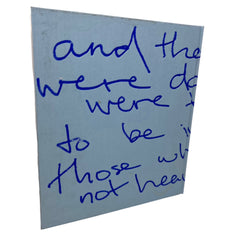 and the
were da
were
to be in
those wh
not hea